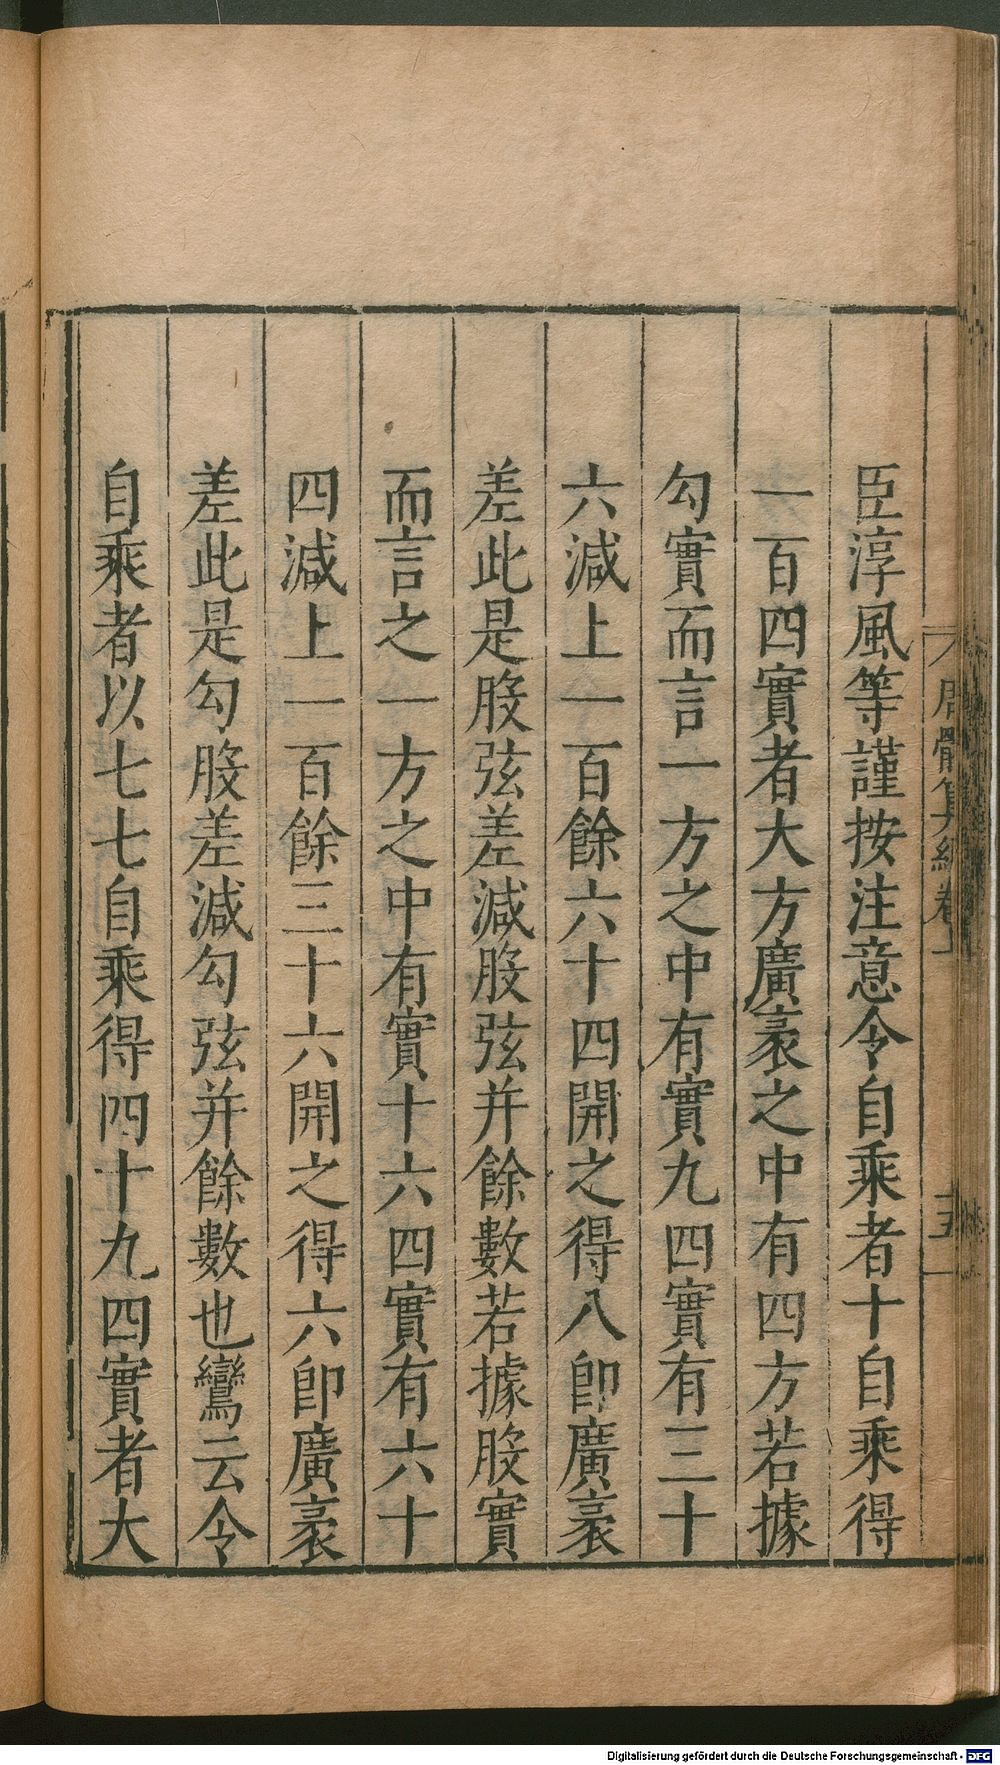 周髀算經卷上
五
臣淳風等謹按注意令自乘者十自乘得
一百四實者大方廣袤之中有四方若據
勾實而言一方之中有實九四實有三十
六減上一百餘六十四開之得八卽廣袤
差此是股弦差減股弦并餘數若據股實
而言之一方之中有實十六四實有六十
四減上一百餘三十六開之得六卽廣袤
差此是勾股差減勾弦并餘數也鸞云令
自乘者以七七自乘得四十九四實者大
Digitalisierung gefördert durch die Deutsche Forschungsgemeinschaft - DFG